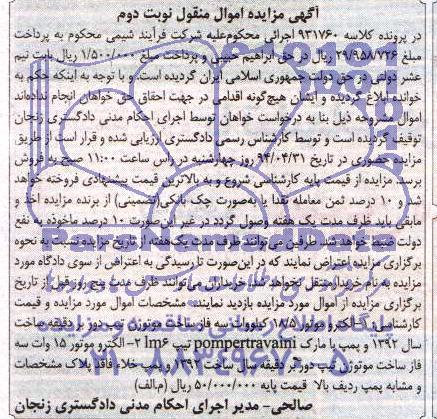 آگهی مزایده اموال منقول نوبت دوم
در پرونده کلاسه ۹۳۱۷۶۰ اجرائی محکوم‌علیه شرکت فرآیند شیمی محکوم به پرداخت
مبلغ ۲۹/۹۵۸/۷۲۶ ریال در حق ابراهیم حبیبی و پرداخت مبلغ ۱/۵۰۰/۰۰۰ ریال بابت نیم
عشر دولتی در حق دولت جمهوری اسلامی ایران گردیده است. و با توجه به اینکه حکم به
خوانده ابلاغ گردیده و ایشان هیچ‌گونه اقدامی در جهت احقاق حق خواهان انجام نداده‌اند
اموال مشروحه ذیل بنا به درخواست خواهان توسط اجرای احکام مدنی دادگستری زنجان
توقیف گردیده است و توسط کارشناس رسمی دادگستری ارزیابی شده و قرار است از طریق
مزایده حضوری در تاریخ ۹۴/۰۴/۳۱ روز چهارشنبه در راس ساعت ۱۱:۰۰ صبح به فروش
برسد. مزایده از قیمت پایه کارشناسی شروع و به بالاترین قیمت پیشنهادی فروخته خواهد
شد و ۱۰ درصد ثمن معامله نقدا یا به‌صورت چک بانکی (تضمینی) از برنده مزایده اخذ و
مابقی باید ظرف مدت یک هفته وصول گردد در غیر این صورت ۱۰ درصد ماخوذه به نفع
دولت ضبط خواهد شد. طرفین می‌توانند ظرف مدت یک هفته از تاریخ مزایده نسبت به نحوه
برگزاری مزایده اعتراض نمایند که در این صورت تا رسیدگی به اعتراض از سوی دادگاه مورد
مزایده به نام خریدار منتقل نخواهد شد. خریداران می‌توانند ظرف مدت پنج روز قبل از تاریخ
برگزاری مزایده از اموال مورد مزایده بازدید نمایند. مشخصات اموال مورد مزایده و قیمت
کارشناسی: ۱- الکترو موتور ۱۸/۵ کیلووات سه فاز ساخت موتوژن دور بر دقیقه ساخت
سال ۱۳۹۲ و پمپ با مارک pompertravaini تیپ lm۶ ۲- الکترو موتور ۱۵ وات سه
فاز ساخت موتوژن تیپ دور بر دقیقه سال ساخت ۱۳۹۲ و پمپ خلاء فاقد پلاک مشخصات
و مشابه پمپ ردیف بالا قیمت پایه ۵۰/۰۰۰/۰۰۰ ریال (م.الف)
صالحی- مدیر اجرای احکام مدنی دادگستری زنجان
ParsNamadData
۰۲۱-۸۸۳۴۹۶۷۰-۵